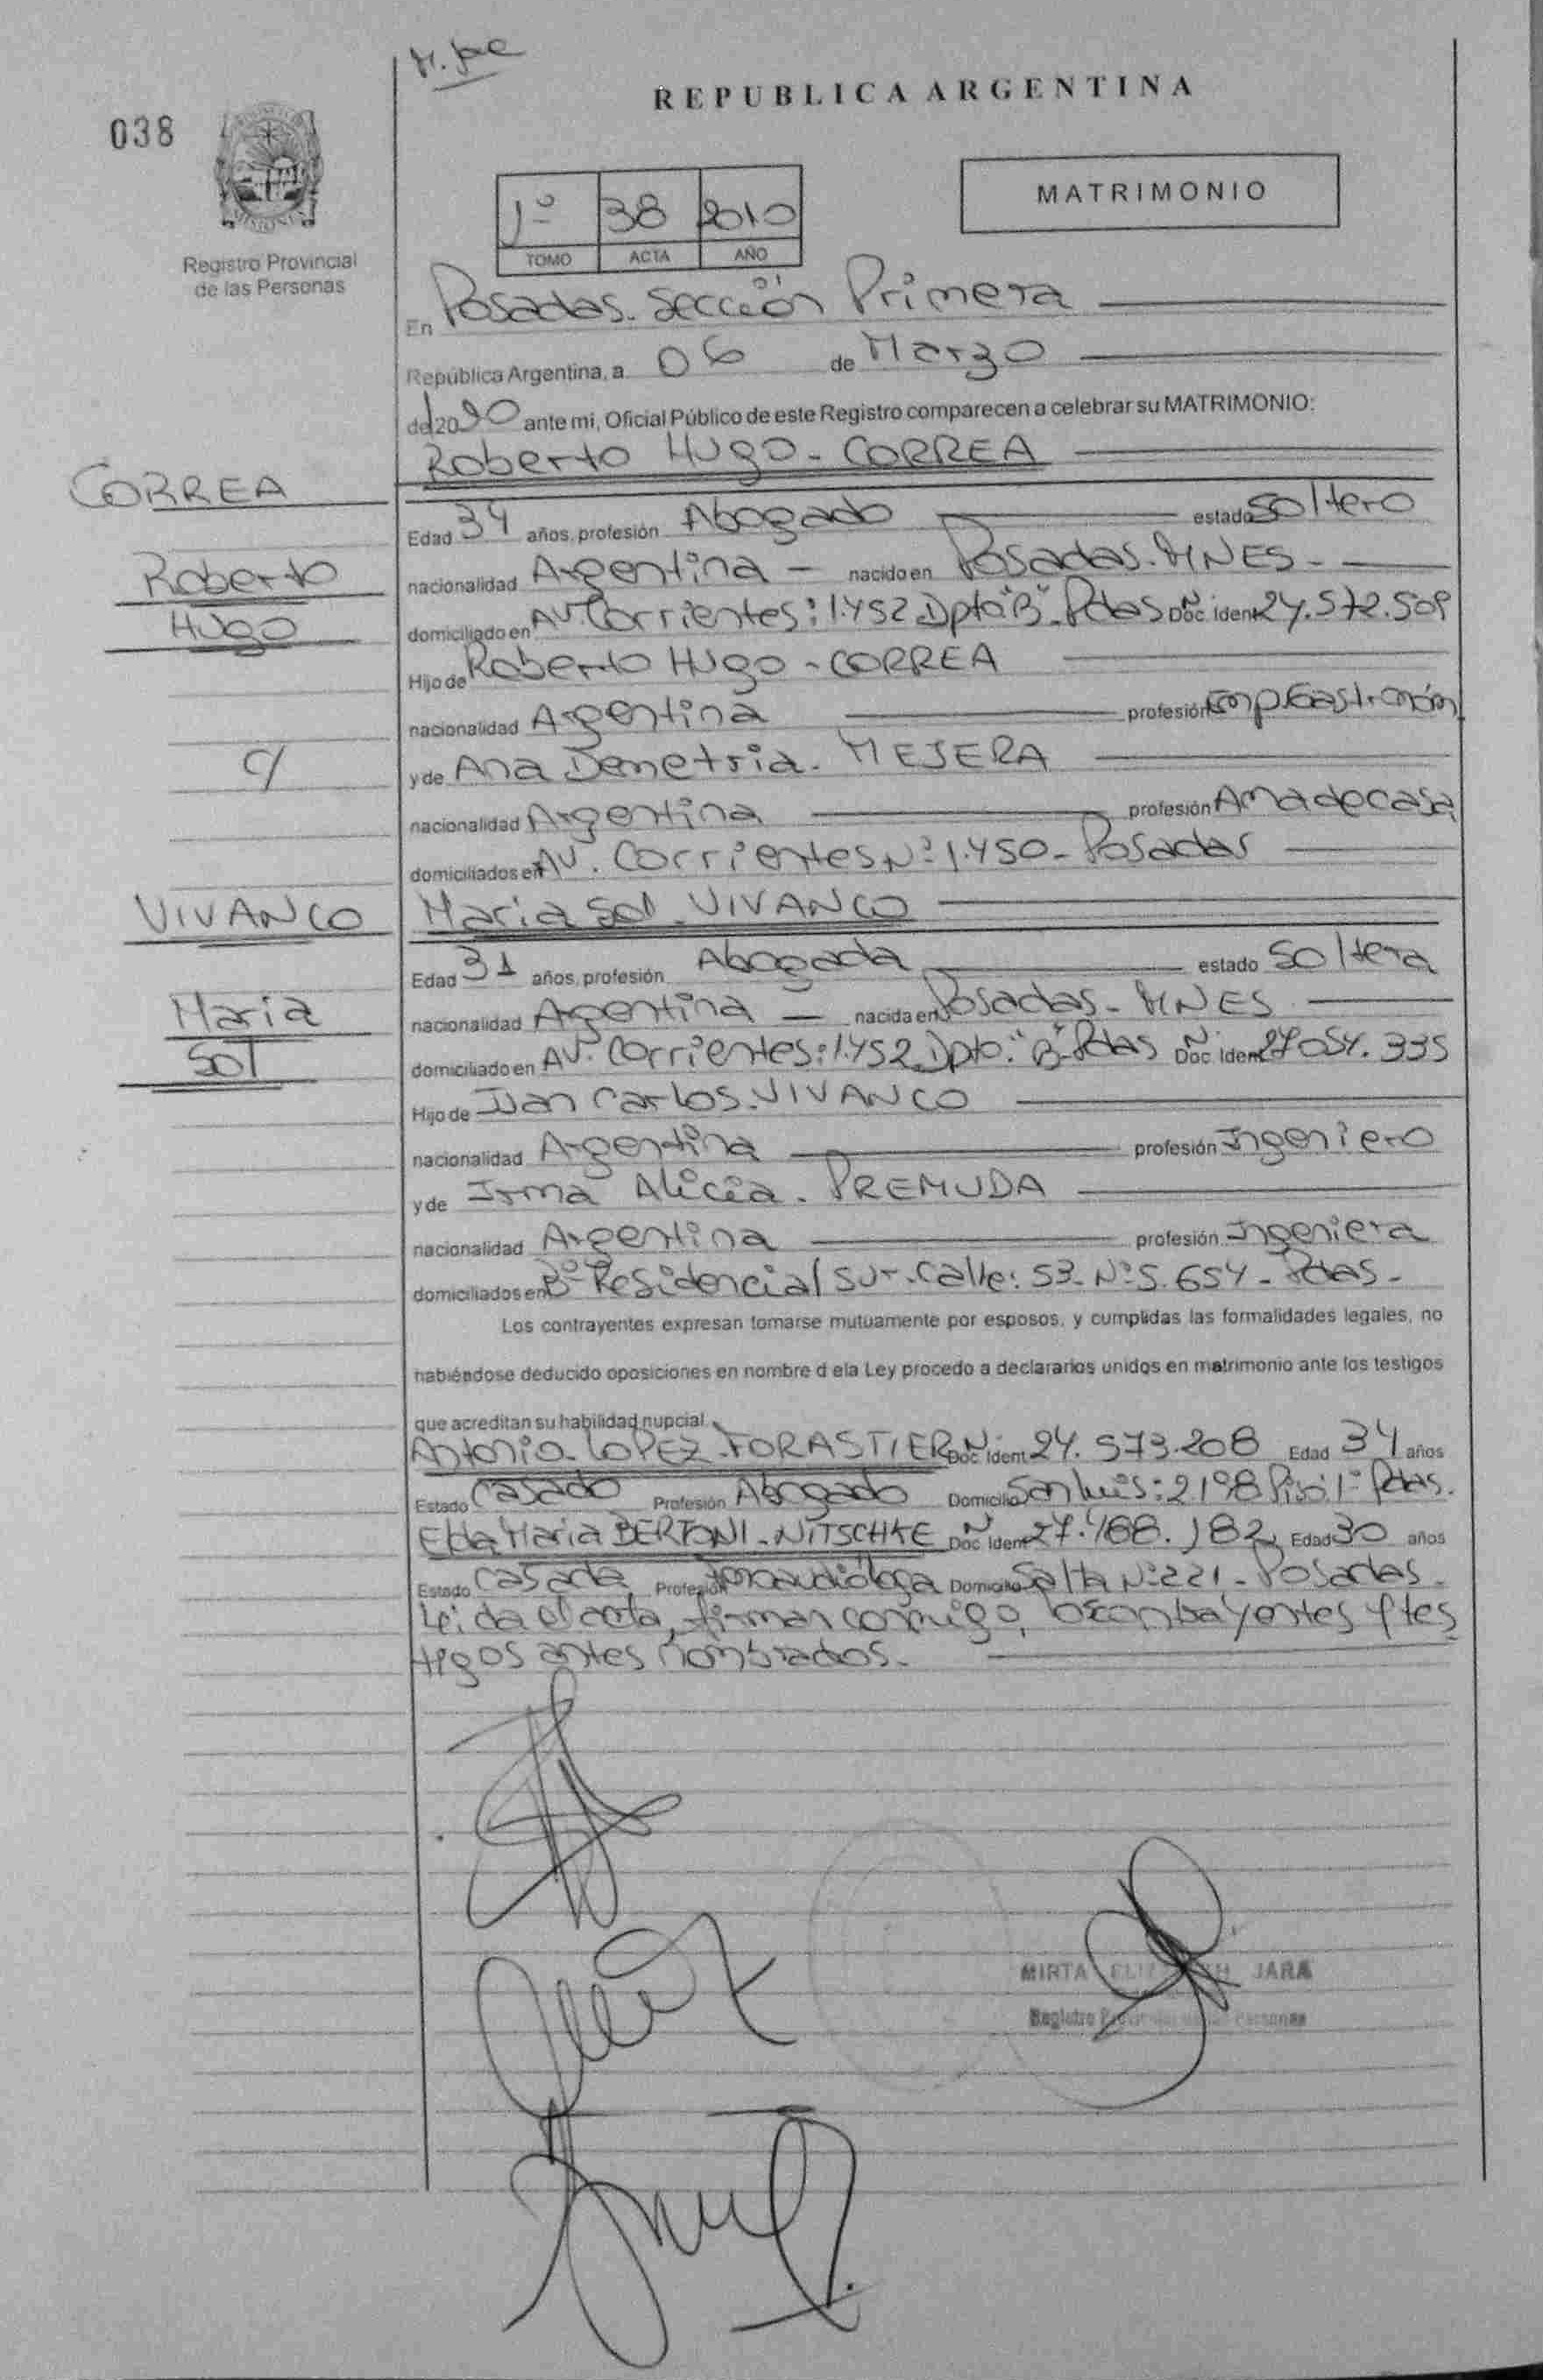 038
REPUBLICA ARGENTINA
MISIONES
Registro Provincial
de las Personas
1º 38 2010
TOMO ACTA AÑO
MATRIMONIO
En Posadas. Sección Primera
República Argentina, a 06 de Marzo
del 20 ante mi, Oficial Público de este Registro comparecen a celebrar su MATRIMONIO:
CORREA
Roberto Hugo - CORREA
Edad 34 años, profesión Abogado estado Soltero
Roberto
nacionalidad Argentina - nacido en Posadas. MNES -
Hugo
domiciliado en AV. Corrientes: 1.452 Dpto "B" - Pdas Doc. Ident Nº 24.572.509
Hijo de Roberto Hugo - CORREA
nacionalidad Argentina profesión Emp. Gastronóm
c/
y de Ana Demetria. MEJERA
nacionalidad Argentina profesión Ama de casa
domiciliados en AV. Corrientes Nº 1.450 - Posadas
VIVANCO
Maria Sol - VIVANCO
Edad 31 años, profesión Abogada estado Soltera
Maria
nacionalidad Argentina - nacida en Posadas - MNES
Sol
domiciliado en AV. Corrientes: 1.452 Dpto. "B" - Pdas Doc. Ident Nº 27.054.335
Hijo de Juan Carlos. VIVANCO
nacionalidad Argentina profesión Ingeniero
y de Irma Alicia. PREMUDA
nacionalidad Argentina profesión Ingeniera
domiciliados en Bº Residencial Sur - Calle: 53 - Nº 5.654 - Pdas -
Los contrayentes expresan tomarse mutuamente por esposos, y cumplidas las formalidades legales, no
habiéndose deducido oposiciones en nombre d ela Ley procedo a declararlos unidos en matrimonio ante los testigos
que acreditan su habilidad nupcial
Antonio - LOPEZ - FORASTIER Doc. Ident Nº 24.573.208 Edad 34 años
Estado Casado Profesión Abogado Domicilio San Luis: 2198 Piso: 1º Pdas.
Elda Maria BERTONI - NITSCHKE Doc Ident Nº 27.488.182 Edad 30 años
Estado Casada Profesión Fonoaudióloga Domicilio Salta Nº 221 - Posadas -
Leida el acta, firman conmigo, los contrayentes y tes
tigos antes nombrados.
MIRTA JARA
Registro Personas